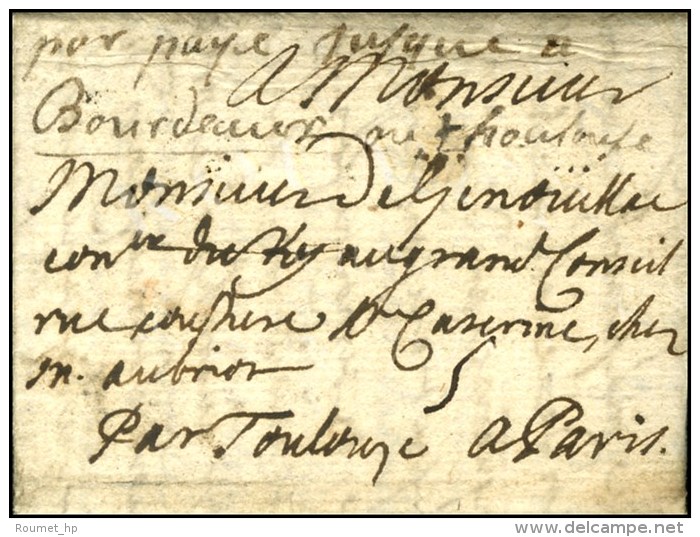 por payé jusque a
A Monsieur
Bourdeaux ou thoulouse
Monsieur De Genoüillac
con.er du Roy au grand Conseil
rue Ste Caterine, chez
m. aubriot 5
Par Toulouze a Paris.
Roumet_hp
www.delcampe.net